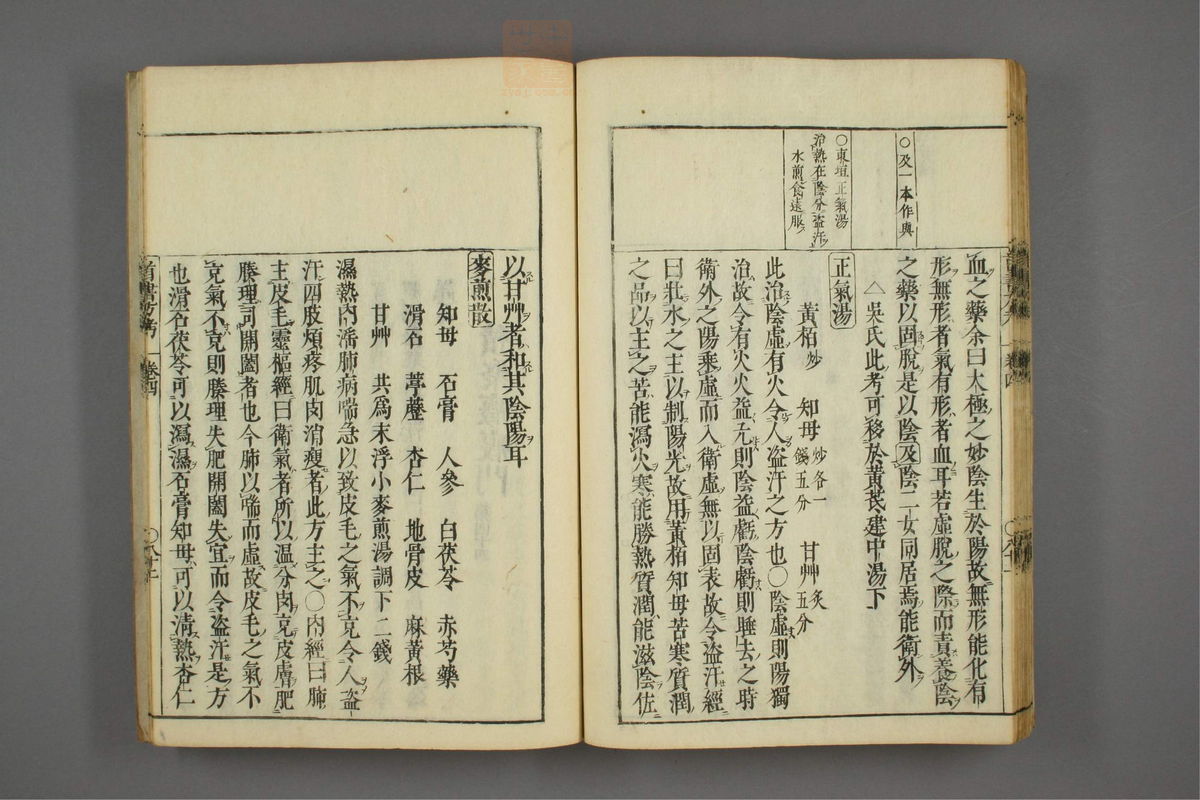 ○及一本作與
○東垣正氣湯
治熱在陰分盗汗
水煎食遠服
血之藥余曰太極之妙陰生於陽故無形能化有
形無形者氣有形者血耳若虛脫之際而責養陰
之藥以固脫是以陰及陰二女同居焉能衛外
△吳氏此考可移於黃芪建中湯下
正氣湯
黃栢炒 知母炒各一錢五分 甘艸炙五分
此治陰虛有火令人盗汗之方也○陰虛則陽獨
治故令有火火益亢則陰益虧陰虧則睡去之時
衛外之陽乘虛而入衛虛無以固表故令盗汗經
曰壯水之主以制陽光故用黃栢知母苦寒質潤
之品以主之苦能瀉火寒能勝熱質潤能滋陰佐
以甘艸者和其陰陽耳
麥煎散
知母 石膏 人參 白茯苓 赤芍藥
滑石 葶藶 杏仁 地骨皮 麻黃根
甘艸 共爲末浮小麥煎湯調下二錢
濕熱內潘肺病喘急以致皮毛之氣不克令人盗
汗四肢煩疼肌肉消瘦者此方主之○內經曰肺
主皮毛靈樞經曰衛氣者所以温分肉克皮膚肥
腠理司開闔者也今肺以喘而虛故皮毛之氣不
克氣不克則腠理失肥開闔失宜而令盗汗是方
也滑石茯苓可以瀉濕石膏知母可以清熱杏仁
卷四